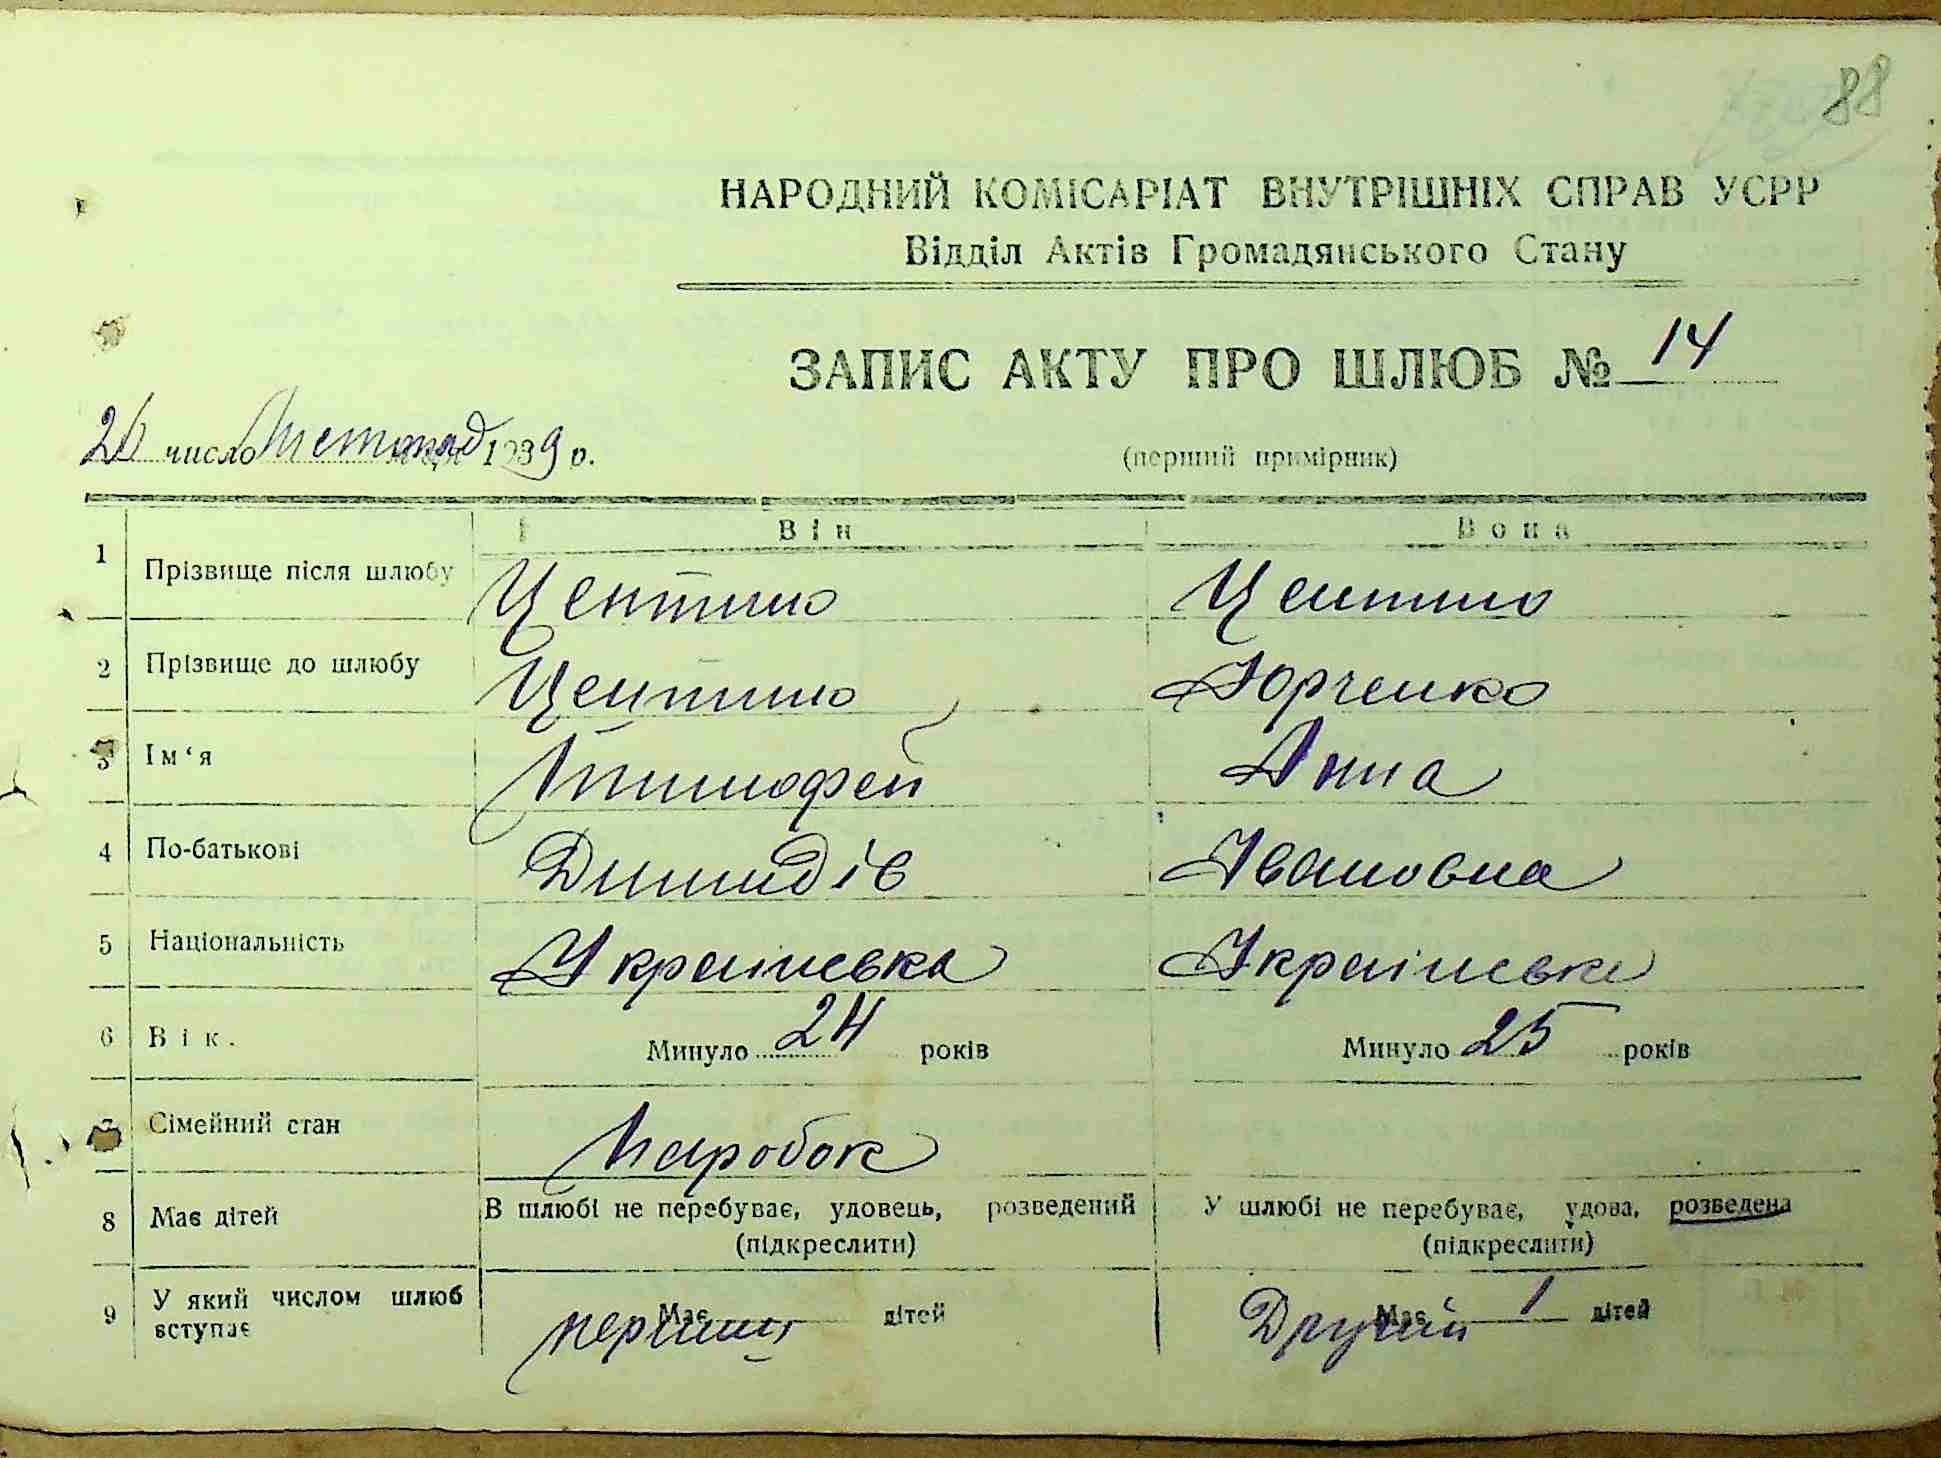 88
НАРОДНИЙ КОМІСАРІАТ ВНУТРІШНІХ СПРАВ УСРР
Відділ Актів Громадянського Стану
ЗАПИС АКТУ ПРО ШЛЮБ № 14
26 число Листопад 1939 р.
(перший примірник)
Він Вона
1 Прізвище після шлюбу
2 Прізвище до шлюбу Юрченко
3 Ім'я Тимофей Анна
4 По-батькові Івановна
5 Національність Українська Українська
6 Вік. Минуло 24 років Минуло 25 років
7 Сімейний стан Паробок
8 Має дітей В шлюбі не перебуває, удовець, розведений У шлюбі не перебуває, удова, розведена
(підкреслити) (підкреслити)
9 У який числом шлюб вступає Має дітей Має 1 дітей
перший Другий